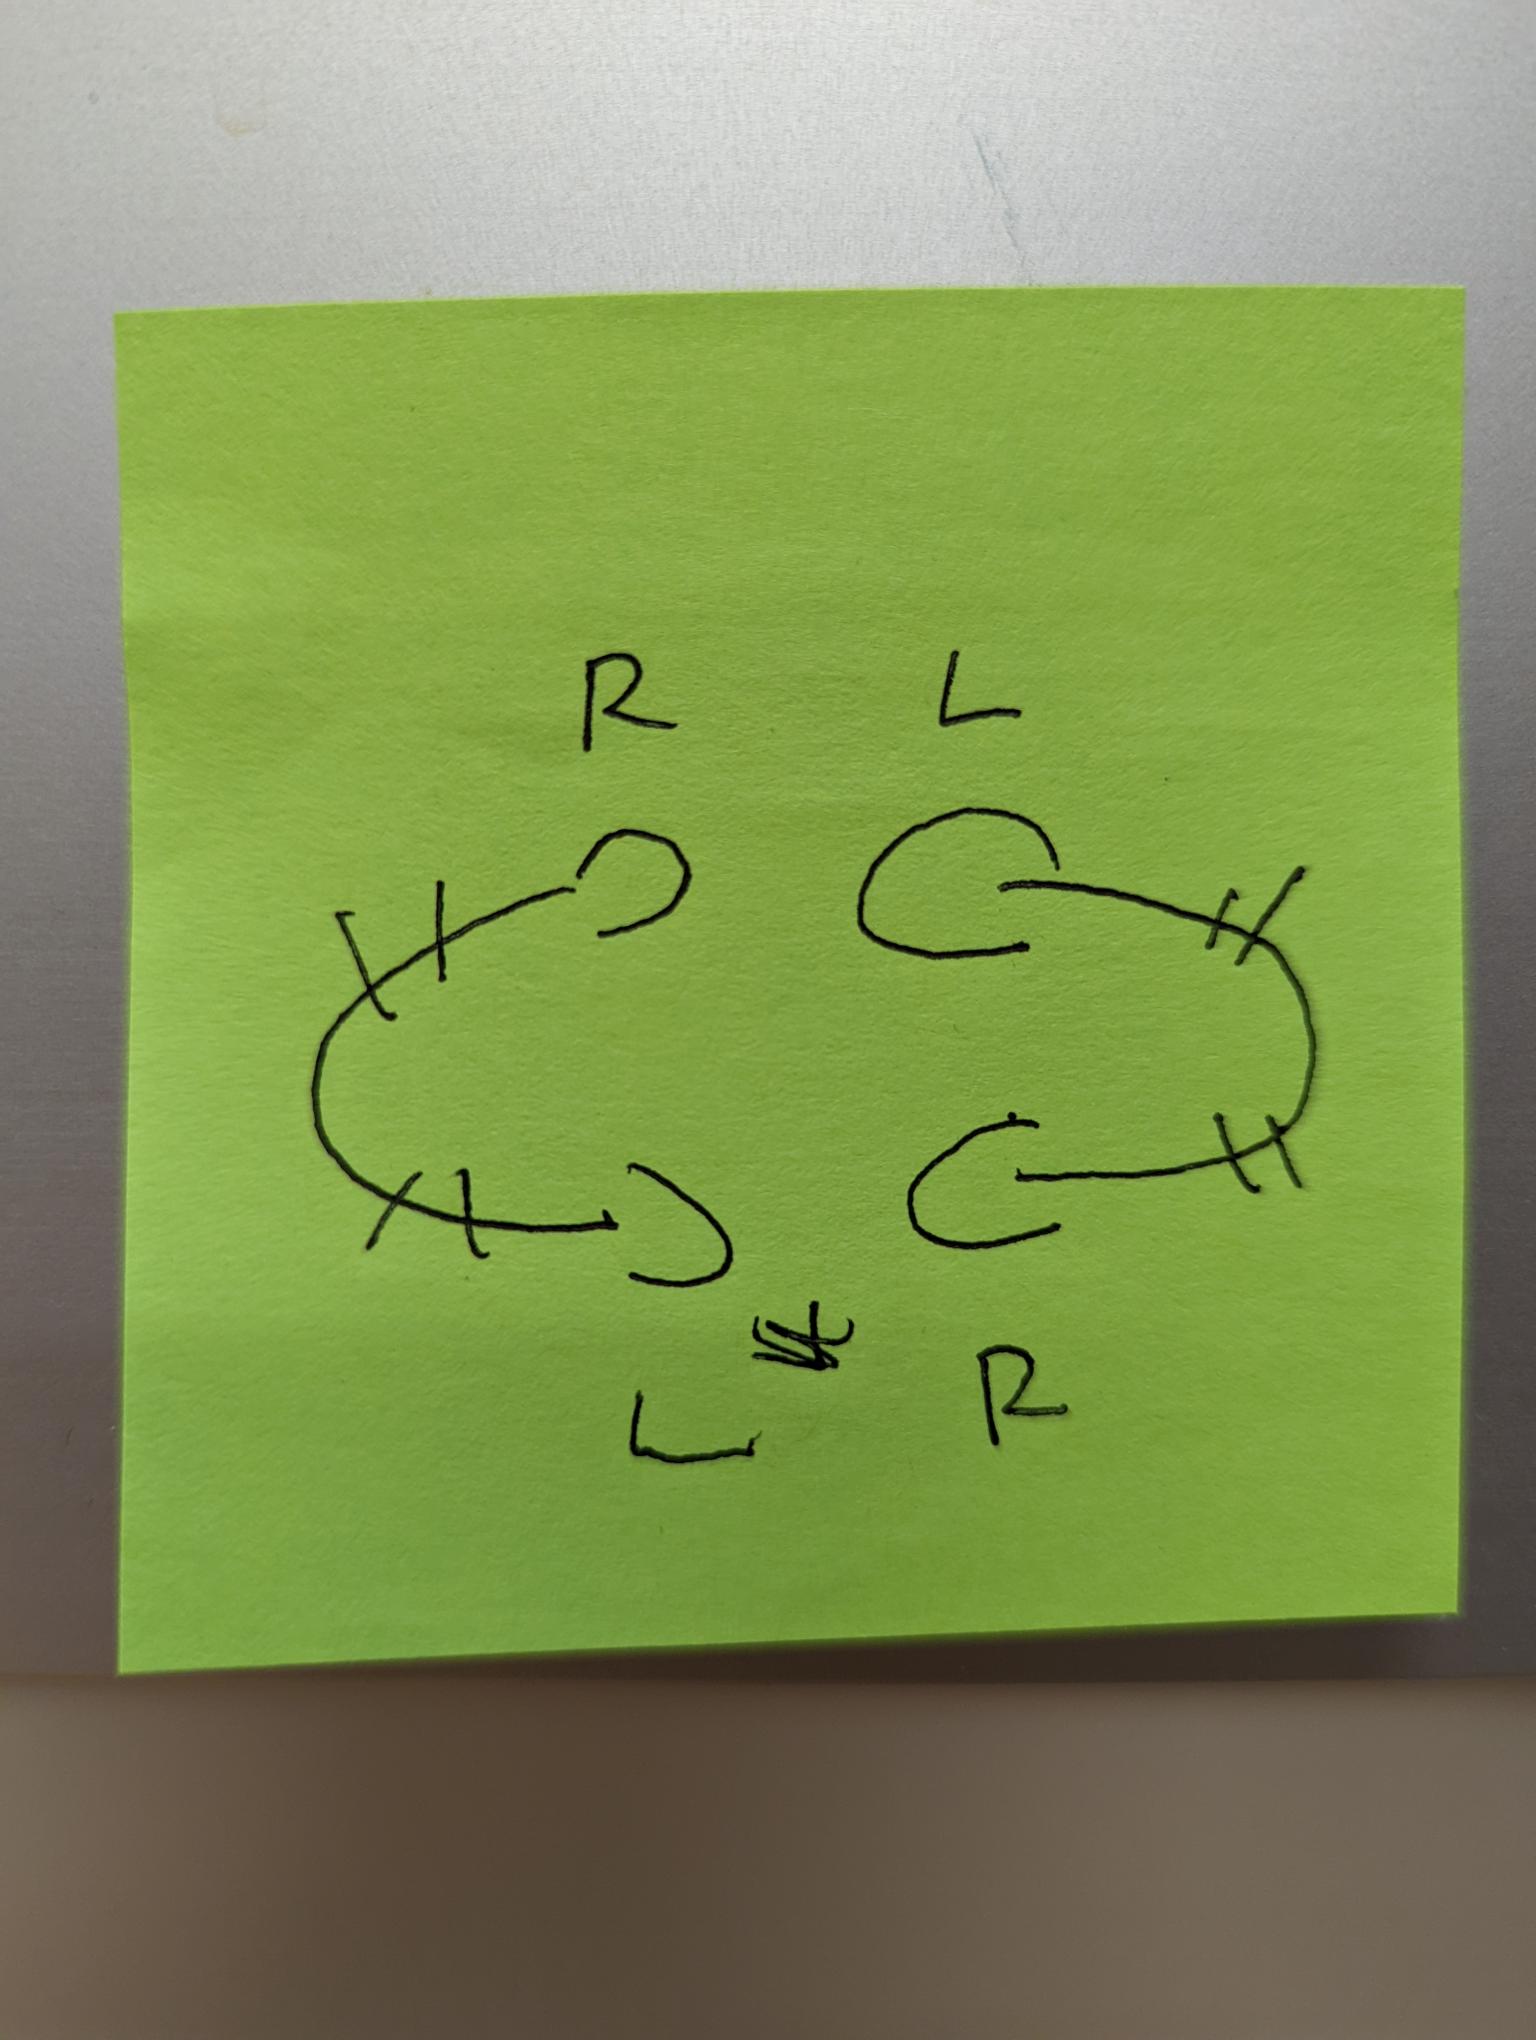 R L
L R